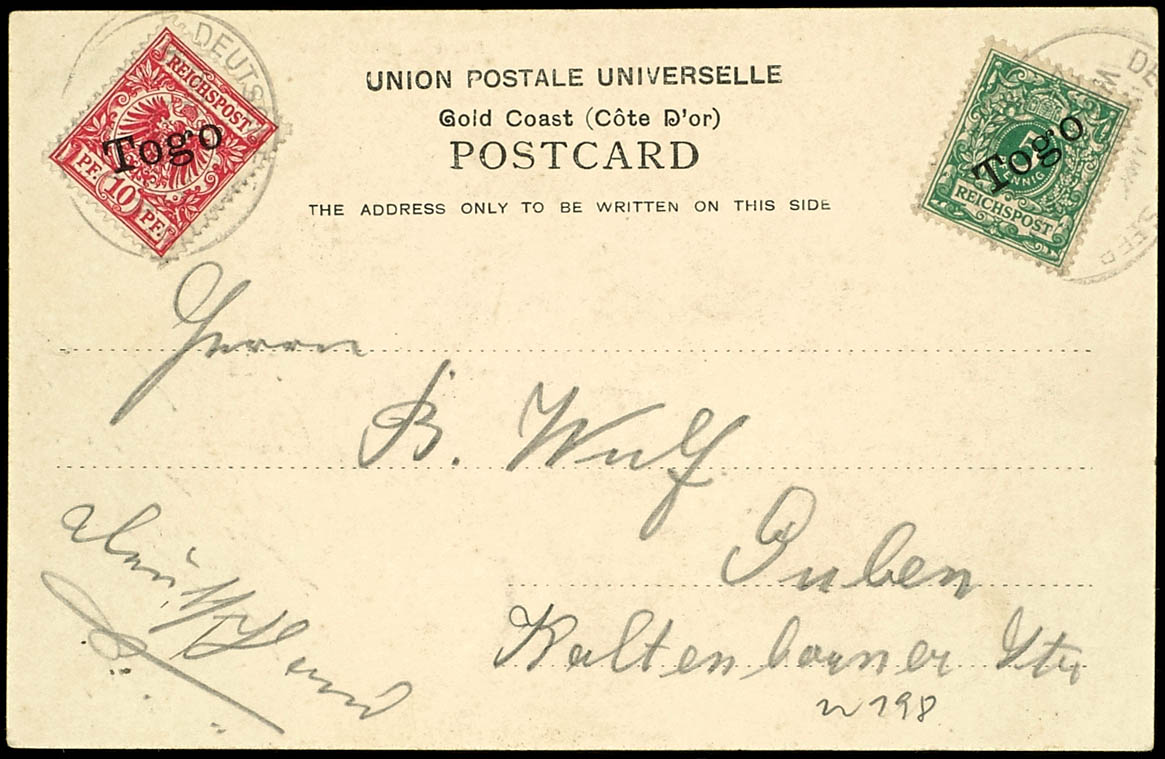 DEUTS
REICHSPOST
Togo
PF. 10 PF.
UNION POSTALE UNIVERSELLE
Gold Coast (Côte D'or)
POSTCARD
THE ADDRESS ONLY TO BE WRITTEN ON THIS SIDE
5
PFENNIG
Togo
REICHSPOST
DE
SEEP
Herrn
B. Wulf
Guben
Kaltenborner Str
198
Deutschland